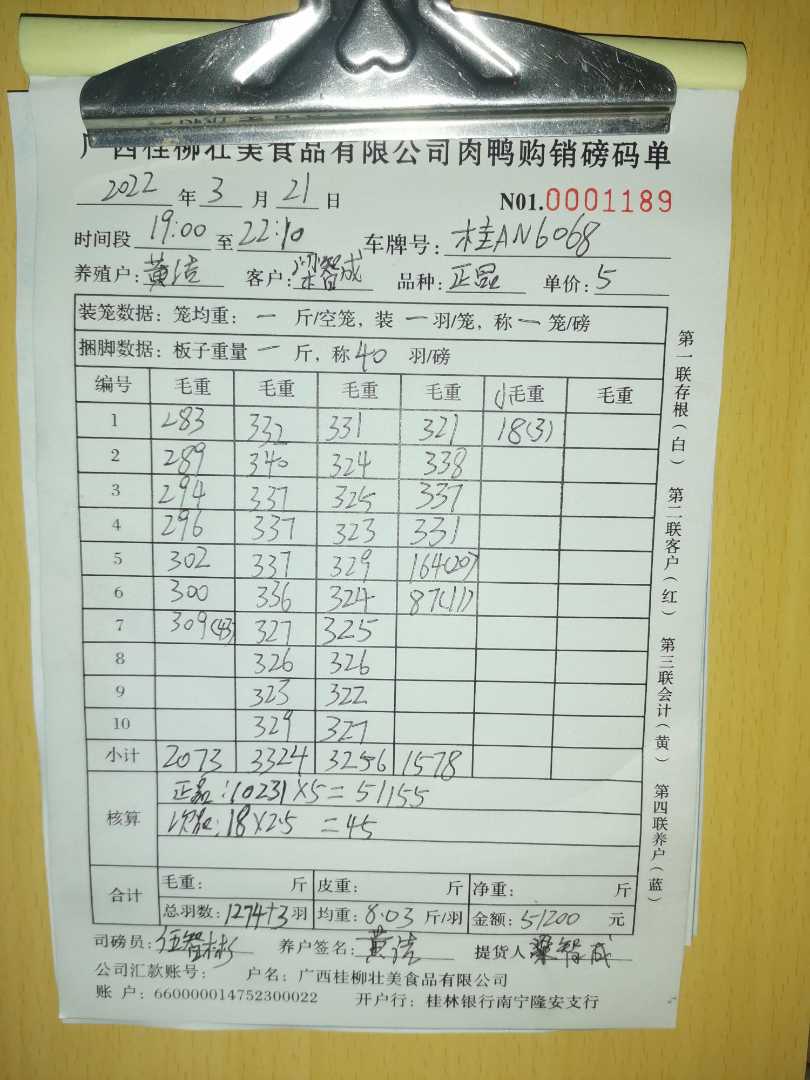 广西桂柳壮美食品有限公司肉鸭购销磅码单
2022 年 3 月 21 日 N01.0001189
时间段 19:00 至 22:10 车牌号: 桂AN6068
养殖户: 黄洁 客户: 梁智成 品种: 正品 单价: 5
装笼数据: 笼均重: 一 斤/空笼, 装 一 羽/笼, 称 一 笼/磅
捆脚数据: 板子重量 一 斤, 称 40 羽/磅
编号 毛重 毛重 毛重 毛重 小毛重 毛重
1 283 332 331 321 18(3)
2 289 340 324 338
3 294 337 325 337
4 296 337 323 331
5 302 337 329 164(20)
6 300 336 324 87(11)
7 309(43) 327 325
8 326 326
9 323 322
10 329 327
小计 2073 3324 3256 1578
核算 正品:10231×5=51155
次品:18×2.5=45
合计 毛重: 斤 皮重: 斤 净重: 斤
总羽数: 1274+3 羽 均重: 8.03 斤/羽 金额: 51200 元
司磅员: 伍智彬 养户签名: 黄洁 提货人 梁智成
公司汇款账号: 户名: 广西桂柳壮美食品有限公司
账 户: 660000014752300022 开户行: 桂林银行南宁隆安支行
第一联存根(白) 第二联客户(红) 第三联会计(黄) 第四联养户(蓝)